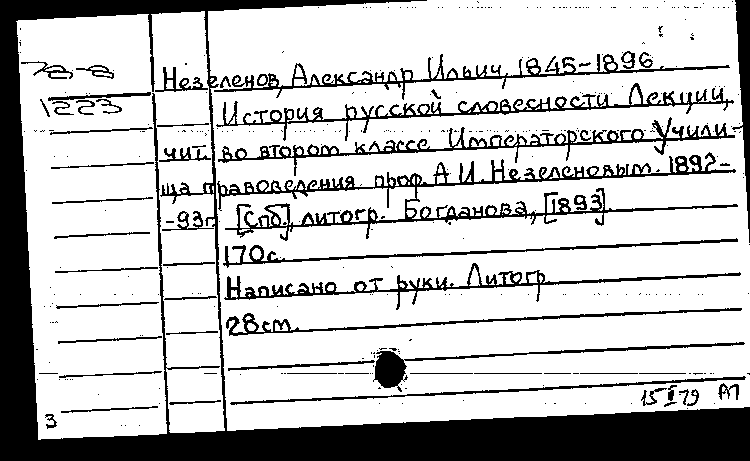 7а-а
1223
Незеленов, Александр Ильич, 1845-1896.
История русской словесности. Лекции,
чит. во втором классе Императорского Учили-
ща правоведения проф. А.И. Незеленовым. 1892-
-93г. [Спб], литогр. Богданова, [1893].
170с.
Написано от руки. Литогр.
28см.
15 II 79 АП
3